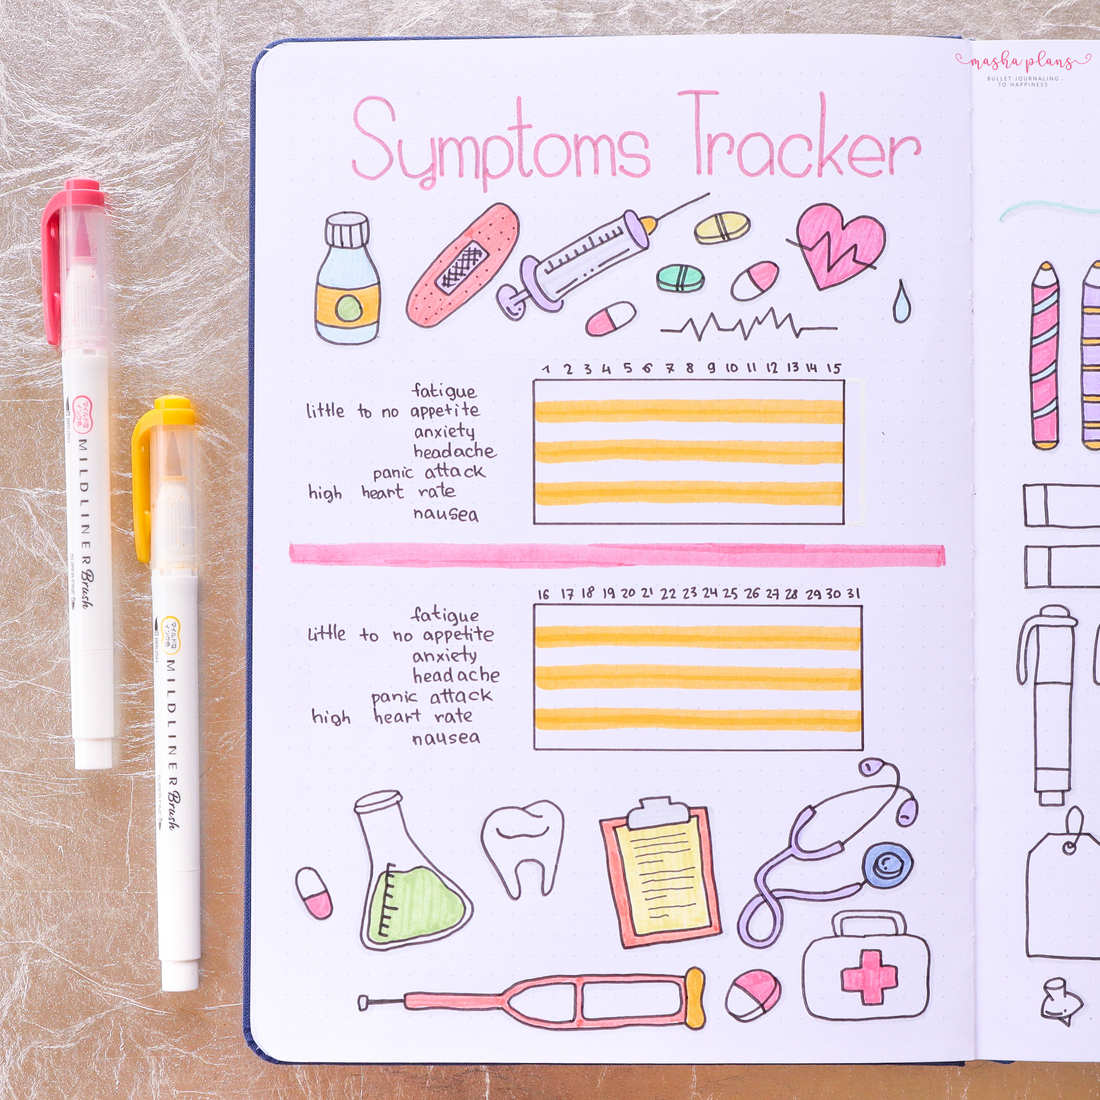 masha plans
BULLET JOURNALING
TO HAPPINESS
Symptoms Tracker
1 2 3 4 5 6 7 8 9 10 11 12 13 14 15
fatigue
little to no appetite
anxiety
headache
panic attack
high heart rate
nausea
16 17 18 19 20 21 22 23 24 25 26 27 28 29 30 31
fatigue
little to no appetite
anxiety
headache
panic attack
high heart rate
nausea
MILDLINER Brush
MILDLINER Brush